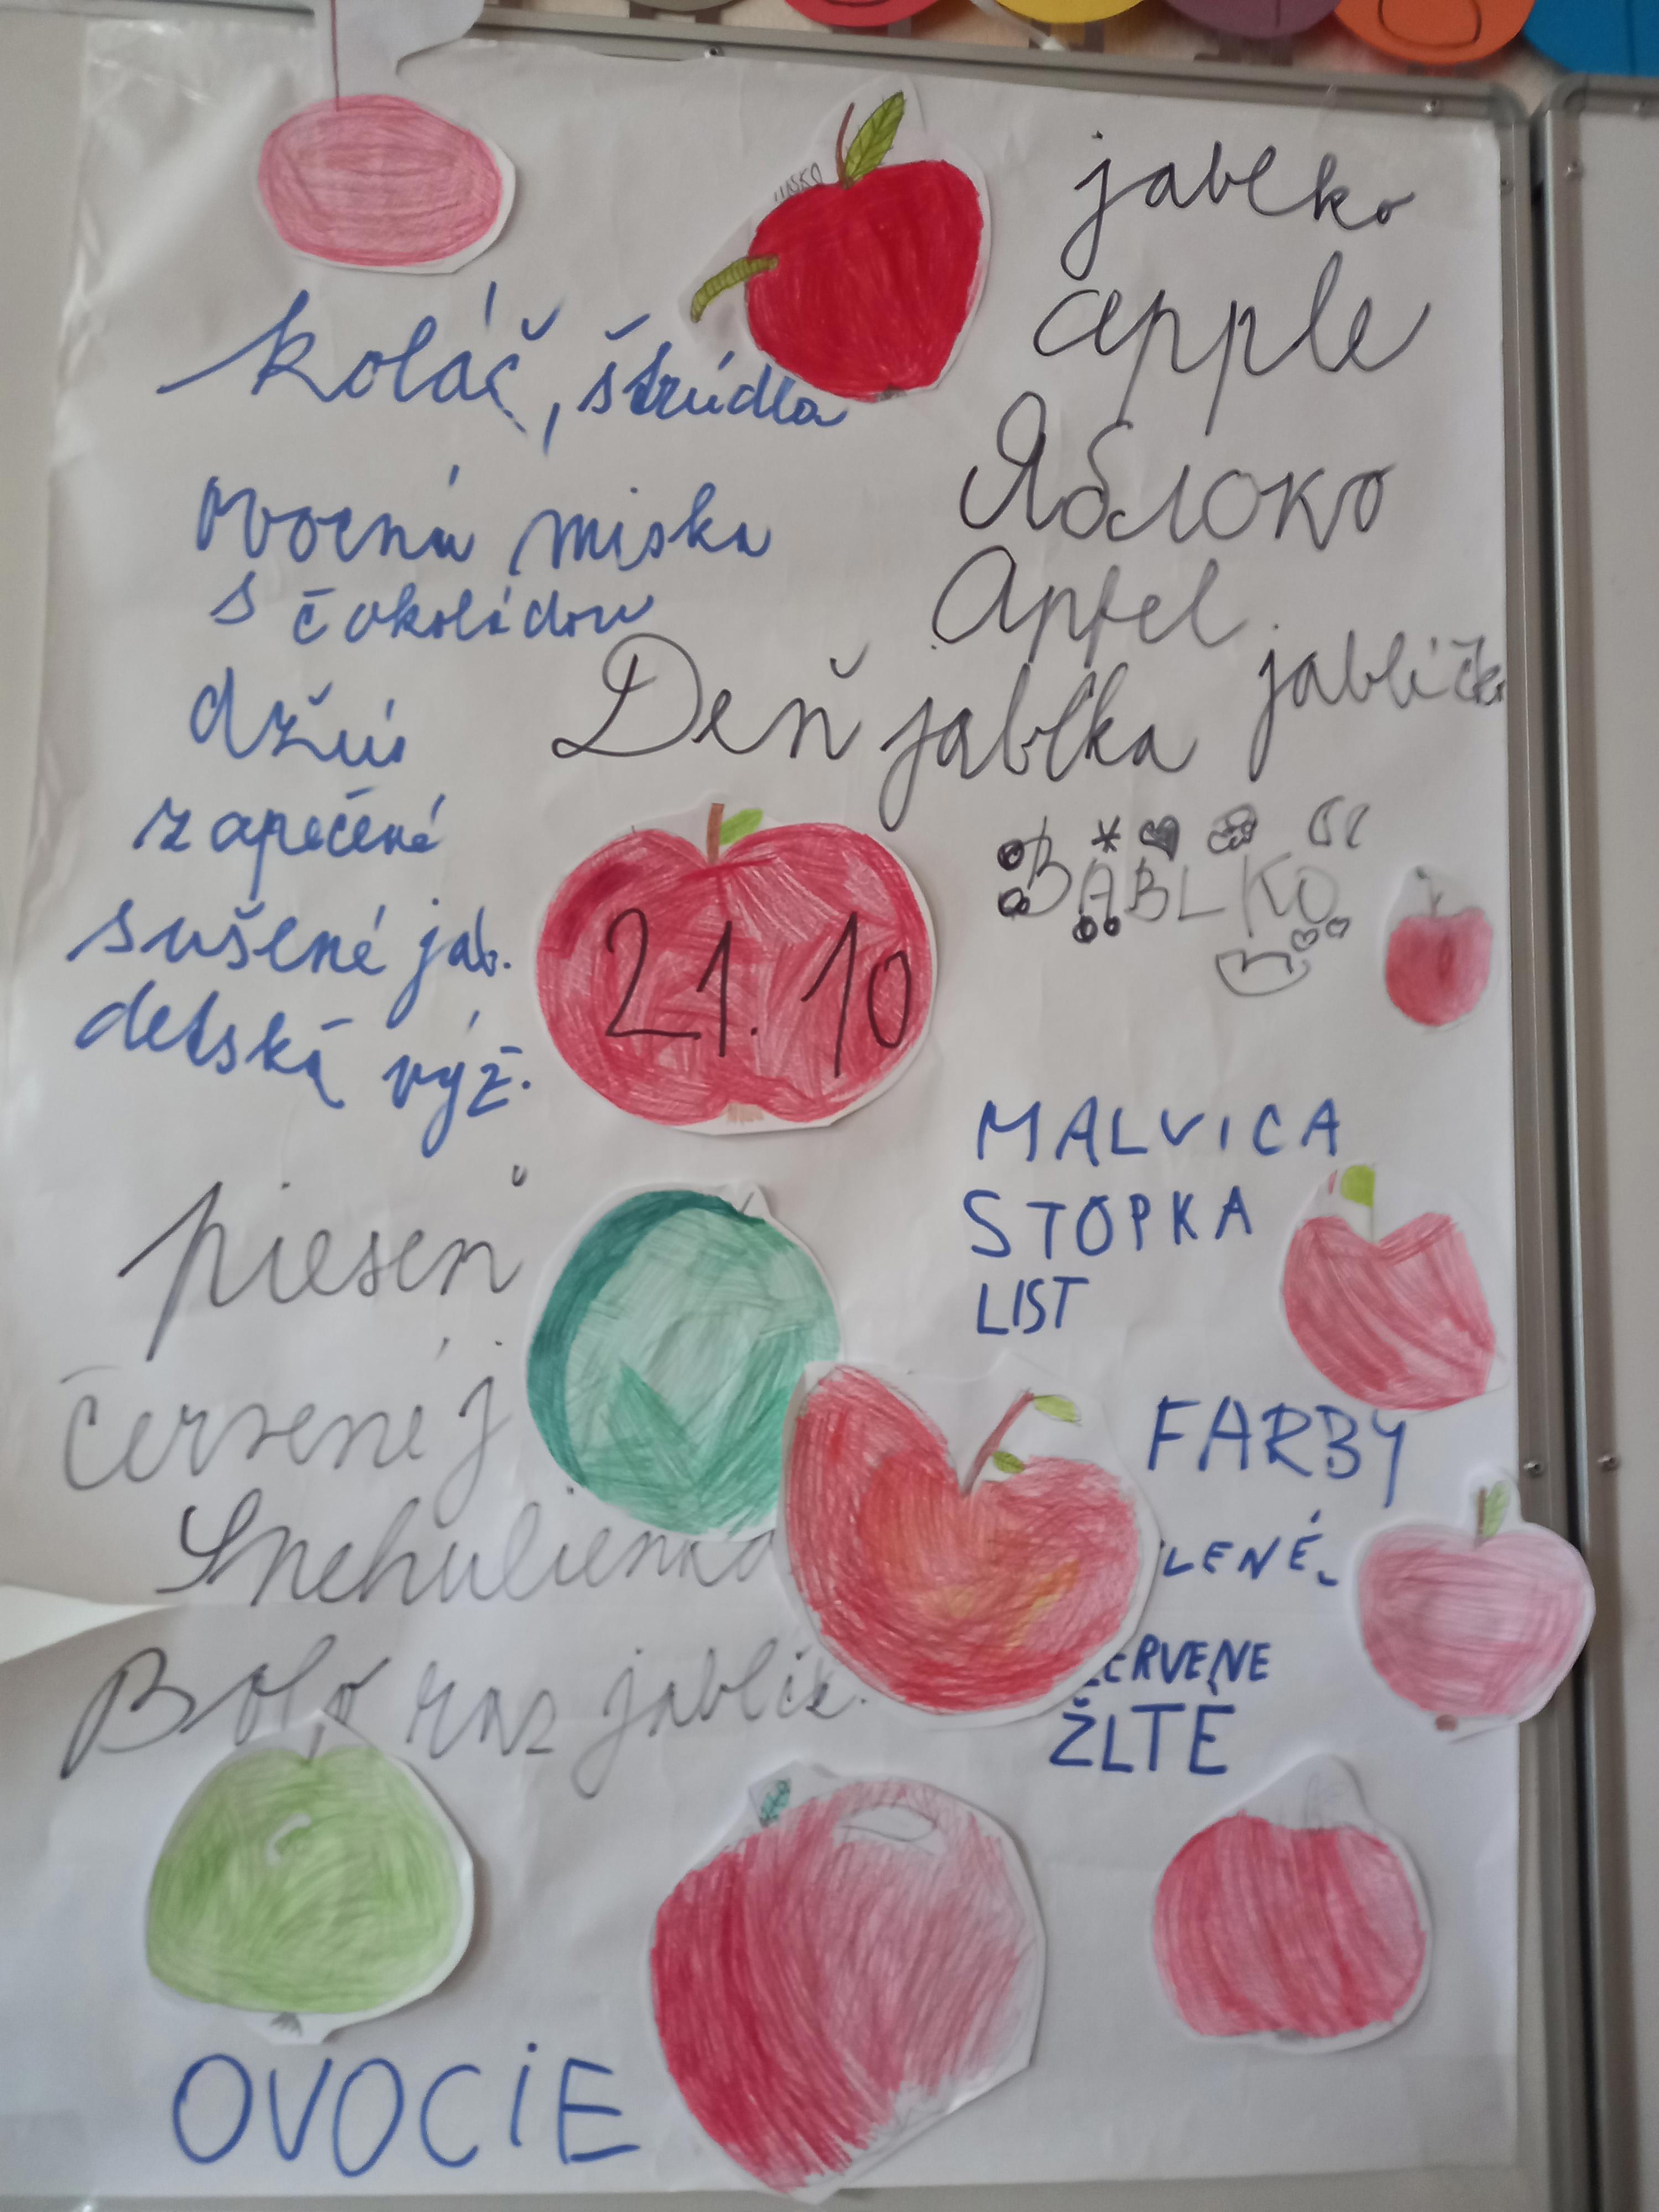 jablko
apple
Яблоко
Apfel
jablíčko
koláč, štrúdla
ovocná miska
s čokoládou
džús
zapečené
sušené jab.
detská výž.
Deň jabĺka
21.10
BABLKO
MALVICA
STOPKA
LIST
FARBY
LENÉ
ERVENE
ŽLTÉ
pieseň
červené j
Snehulienka
Bolo raz jabĺčk.
OVOCIE